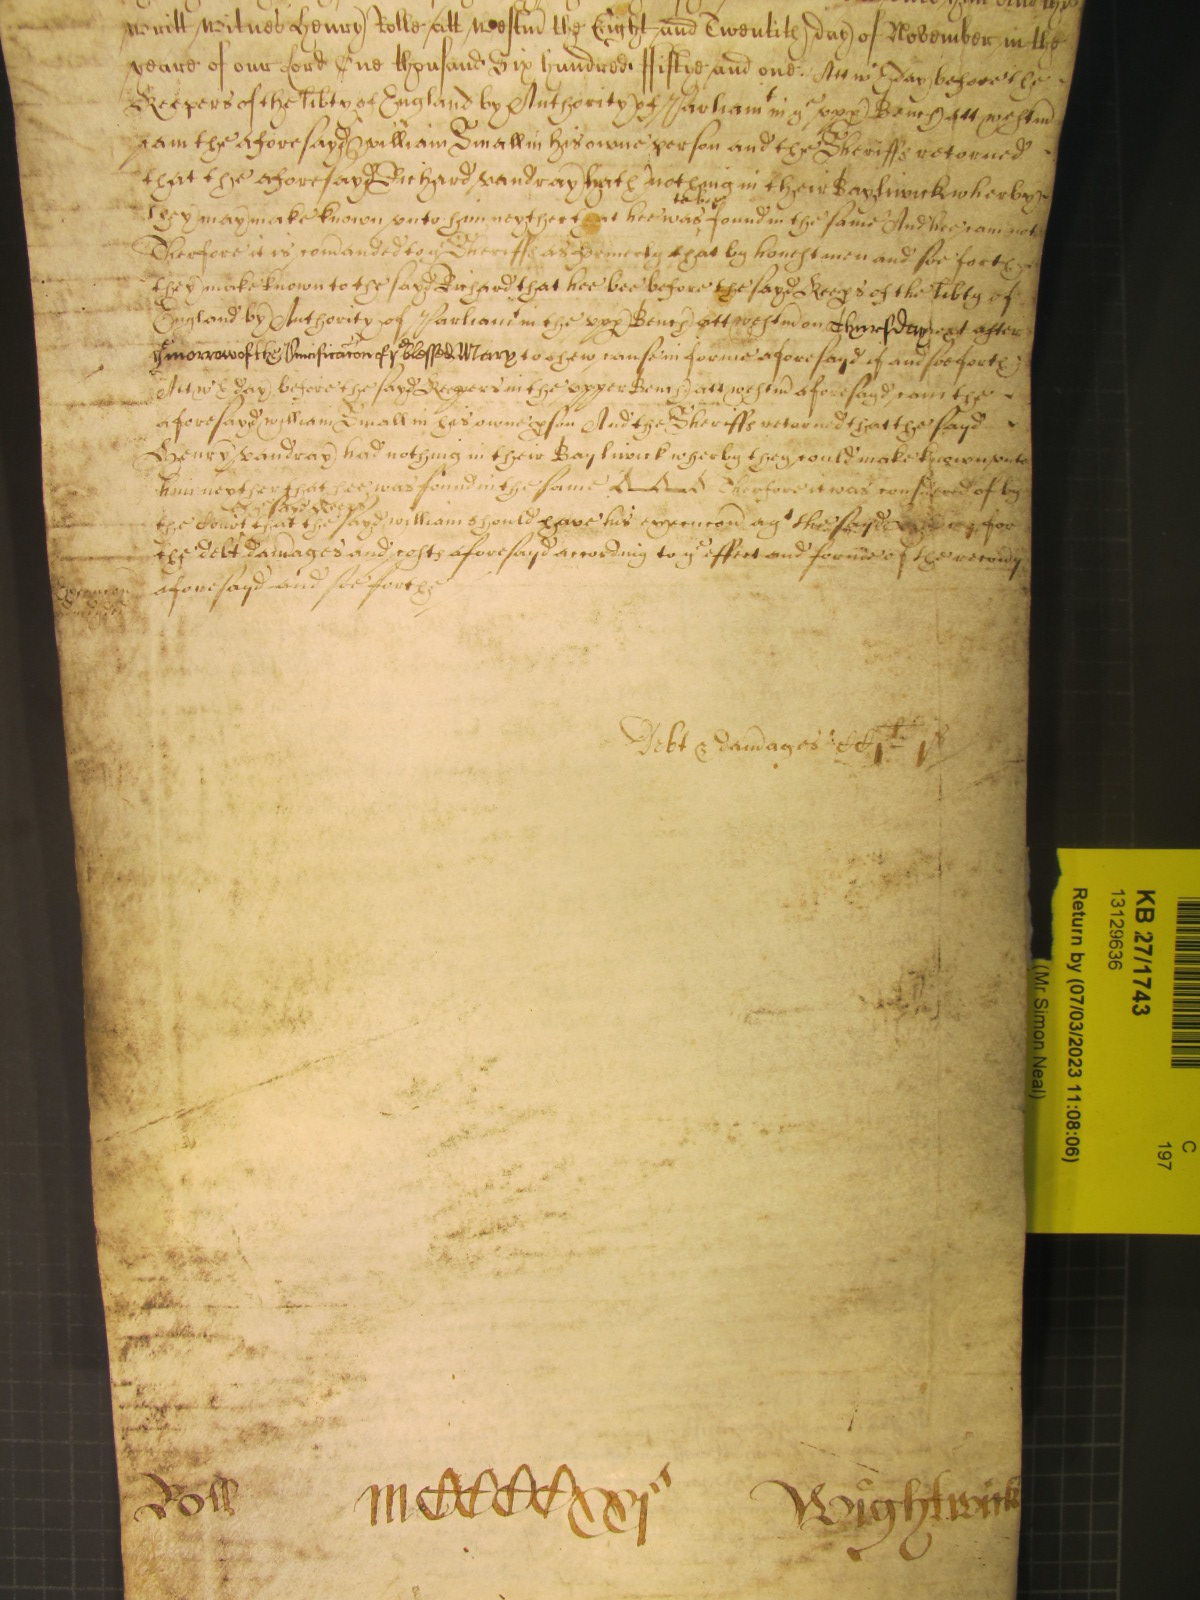 writt Witnes Henry Rolle att Westm̃ the Eight and Twentith day of November in the
yeare of our Lord One thousand Six hundred ffiftie and one. Att wch day before the
Keepers of the libty of England by Authority of Parliamt in ye upp Bench att westm̃
cam the aforesayd William Small in his owne person and the Sheriffs returned
that the aforesayd Richard vandray hath nothing in their Bayliwick wherby
they may make known unto him neyther that hee was found in the same And hee cam not
Therfore it is com̃anded to ye Sheriffs as formerly that by honest men and soe forth
they make known to the sayd Richard that hee bee before the sayd Keeps of the libty of
England by Authority of Parliamt in the upp Bench att westm̃ on Thursday next after
ye morrow of the Purificaton of ye blessed Mary to shew cause in forme aforesayd if and soe forth
Att wch day before the sayd Keepers in the upper Bench att westm̃ aforesayd cam the
aforesayd William Small in his owne pson And the Sheriffs returned that the sayd
Henry vandray had nothing in their Bayliwick wherby they could make known unto
him neyther that hee was found in the same Therfore it was considered of by
the sayd Keeps
the Court that the sayd William should have his execucon agt the sayd for
the debt damages and costs aforesayd according to ye effect and forme of the recovy
aforesayd and soe forthe
Debt & damages
Roll MCCCCxxj Wightwick
KB 27/1743
13129636
Return by (07/03/2023 11:08:06)
(Mr Simon Neal)
C
197